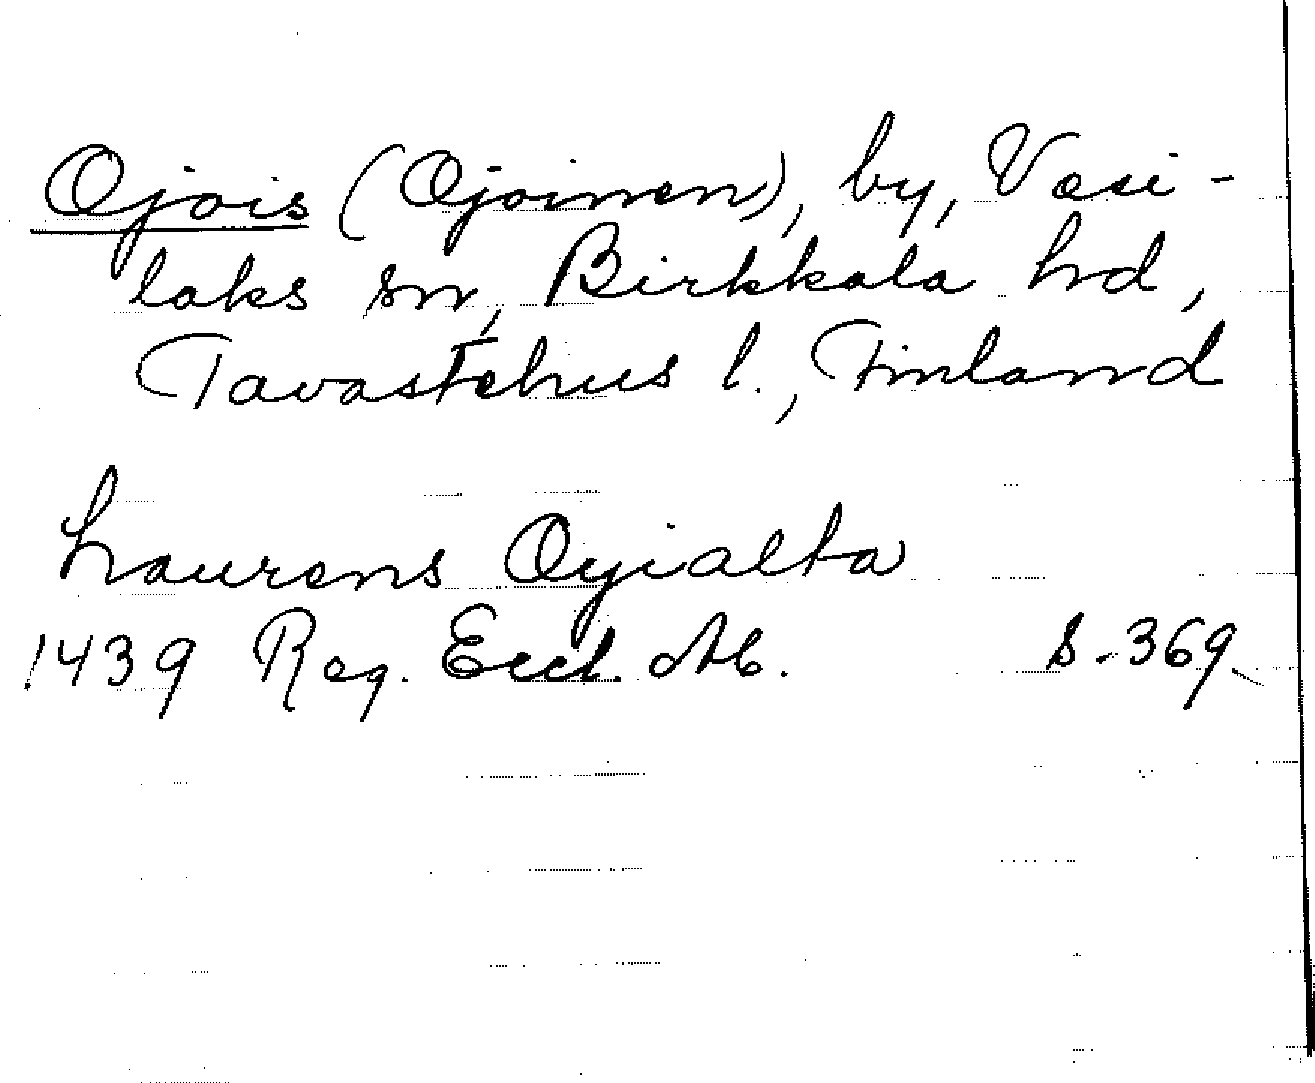 Ojois (Ojoinen), by, Vesi-
laks sn, Birkkala hd,
Tavastehus l., Finland
Laurens Oyialta
1439 Reg. Eccl. Ab. S. 369